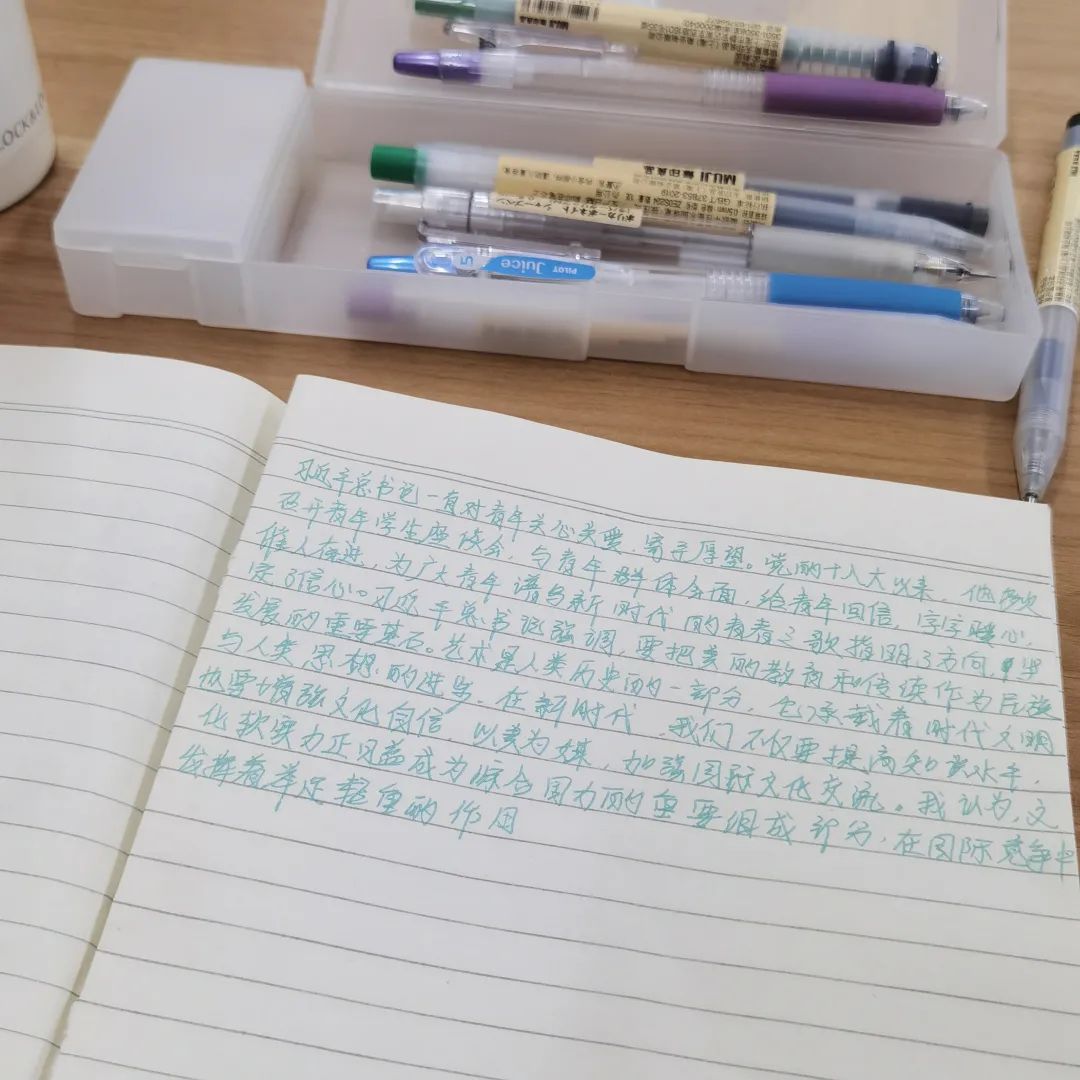 LOCK&LO
MUJI 無印良品
MUJI 無印良品
GB/T 37853-2019
ポリカーボネイト
シャープペン
PILOT Juice 05
习近平总书记一直对青年关心关爱,寄予厚望。党的十八大以来,他多次
召开青年学生座谈会,与青年群体会面,给青年回信,字字暖心,
催人奋进,为广大青年谱写新时代的青春之歌指明了方向,坚
定了信心。习近平总书记强调,要把美的教育和传续作为民族
发展的重要基石。艺术是人类历史的一部分,它承载着时代文明
与人类思想的进步。在新时代,我们不仅要提高知识水平,
也要增强文化自信,以美为媒,加强国际文化交流。我认为,文
化软实力正日益成为综合国力的重要组成部分,在国际竞争中
发挥着举足轻重的作用